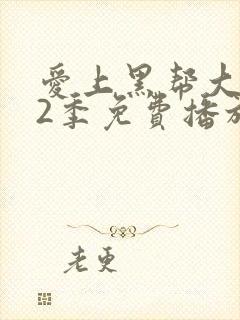 爱上黑帮大
2季免费播放
老更